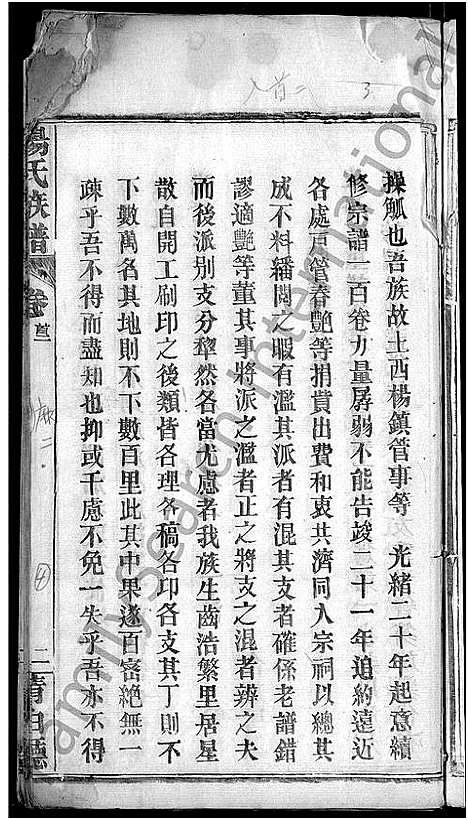 操觚也吾族故土西楊鎮管事等 光緒二十年起意續
修宗譜一百卷力量孱弱不能告竣二十一年追約遠近
各處戶管春艶等捐貲出費和衷共濟同入宗祠以總其
成不料繙閱之暇有濫其派者有混其支者確係老譜錯
謬適艶等董其事將派之濫者正之將支之混者辨之夫
而後派別支分犂然各當尤慮者我族生齒浩繁里居星
散自開工刷印之後類皆各理各稿各印各支其丁則不
下數萬名其地則不下數百里此其中果遂百密絶無一
疎乎吾不得而盡知也抑或千慮不免一失乎吾亦不得
楊氏族譜 卷首二
二 清白恩
首二 3
二
4
familysearch international